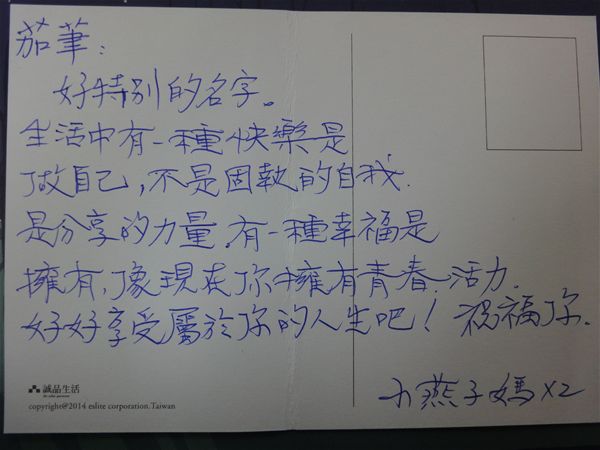 茄筆：
好特別的名字。
生活中有一種快樂是
做自己，不是固執的自我.
是分享的力量.有一種幸福是
擁有,像現在你擁有青春、活力.
好好享受屬於你的人生吧！祝福你.
小燕子媽 x2
誠品生活
the eslite spectrum
copyright@2014 eslite corporation.Taiwan